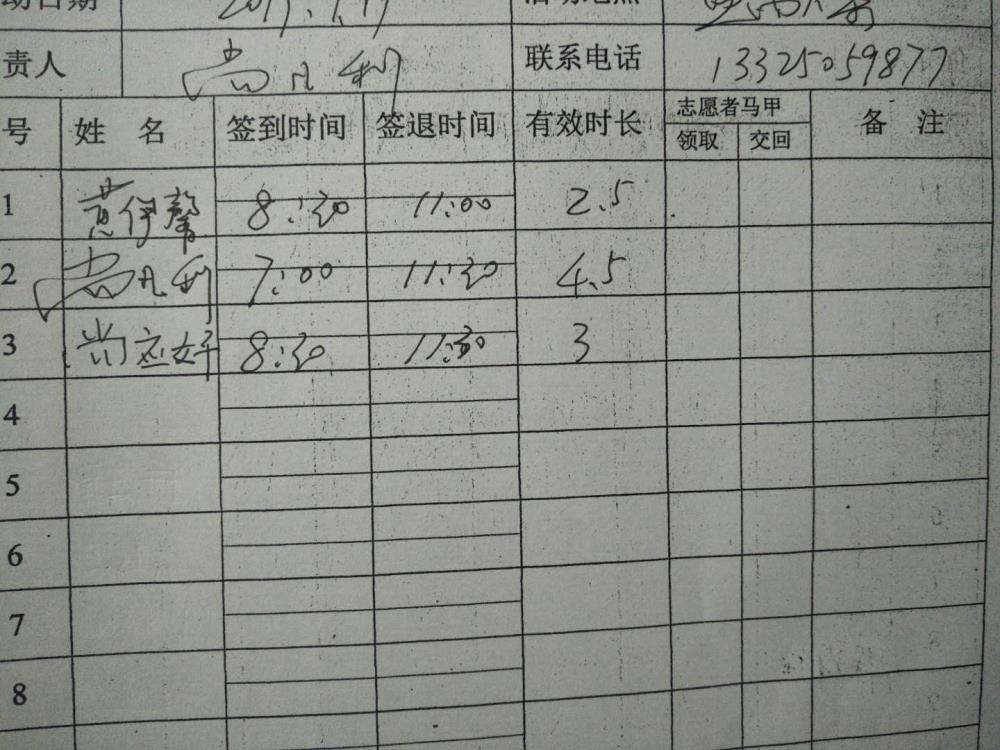 责人 尚凡利 联系电话 13325059877
号 姓 名 签到时间 签退时间 有效时长 志愿者马甲 备 注
领取 交回
1 黄伊馨 8:30 11:00 2.5
2 尚凡利 7:00 11:30 4.5
3 尚应好 8:30 11:30 3
4
5
6
7
8